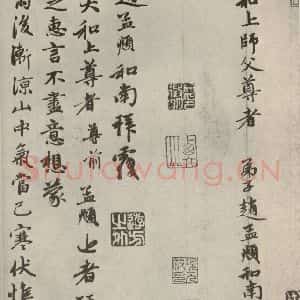 和上師父尊者 弟子趙孟頫和南
孟頫和南拜覆
和上尊者 尊前 孟頫上者
之惠言不盡意想蒙
雨後漸涼山中氣當已寒伏惟
Shufawang.CN